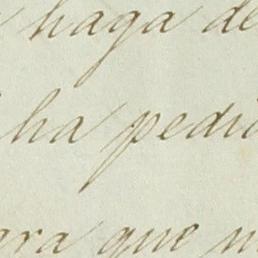 haga de
ha pedi
ara que